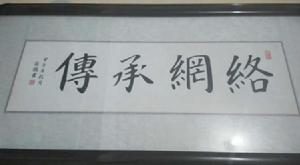 傳承網絡